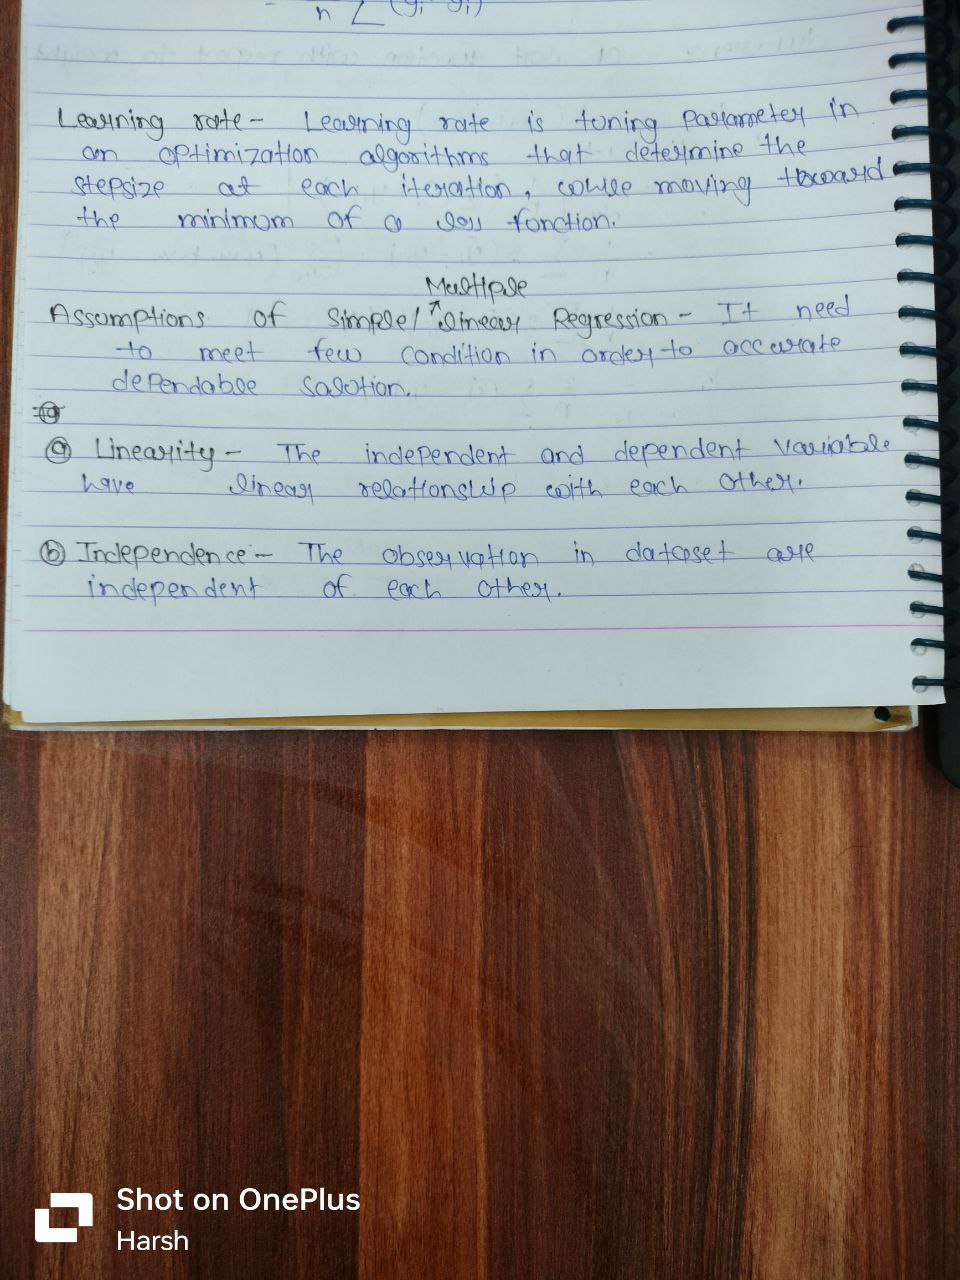 n Σ (yi yi)
Learning rate - Learning rate is tuning Parameter in
an optimization algorithms that determine the
stepsize at each iteration, while moving toward
the minimum of a loss function.
Multiple
Assumptions of Simple/ linear Regression - It need
to meet few condition in order to accurate
dependable solution.
(a) Linearity - The independent and dependent variable
have linear relationship with each other.
(b) Independence - The observation in dataset are
independent of each other.
Shot on OnePlus
Harsh